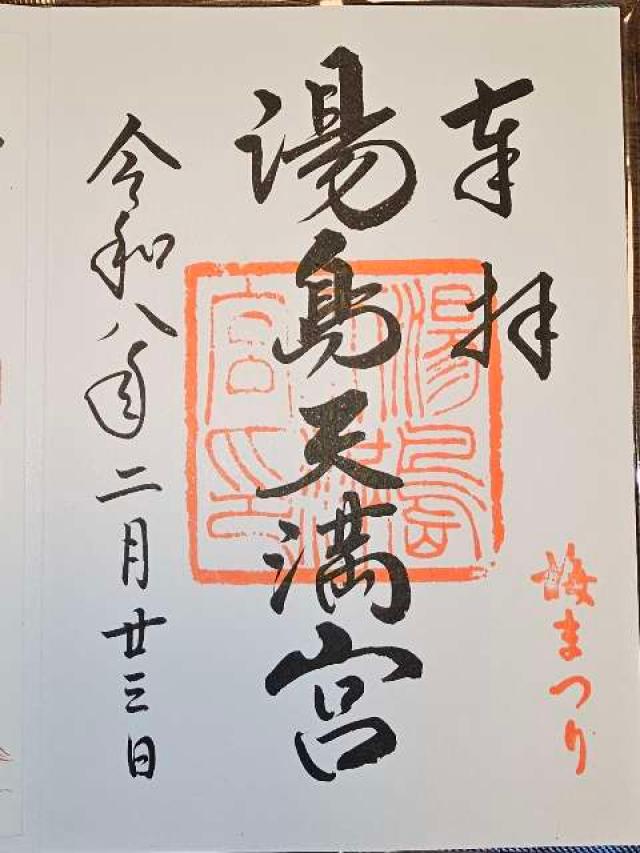 奉拝
湯島天満宮
令和八年二月廿三日
梅まつり
湯島天満宮印